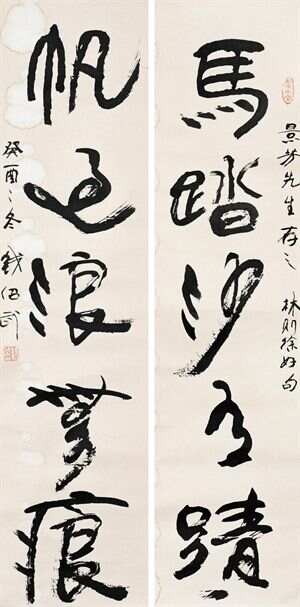 景芳先生存之 林則徐好句
馬踏沙有蹟
帆過浪無痕
癸酉之冬 錢紹武